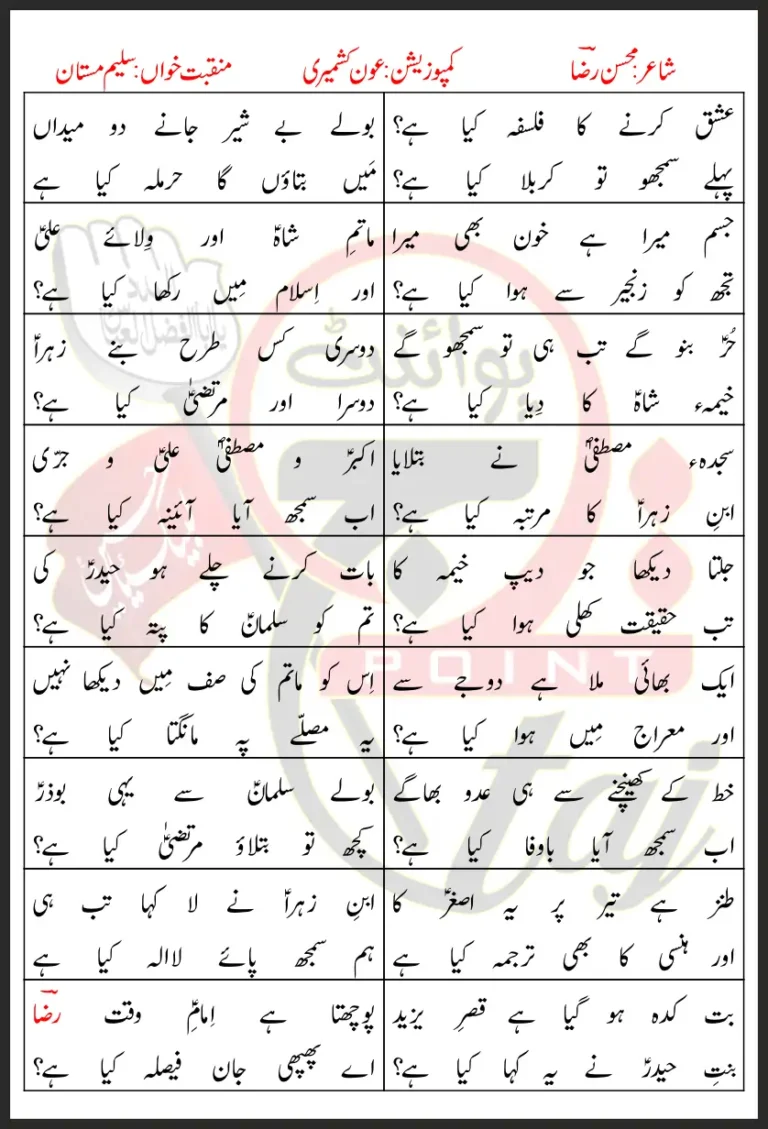 شاعر: محسن رضاؔ کمپوزیشن: عون کشمیری منقبت خواں: سلیم مستان
عشق کرنے کا فلسفہ کیا ہے؟
پہلے سمجھو تو کربلا کیا ہے؟
بولے بے شیر جانے دو میداں
مَیں بتاؤں گا حرملہ کیا ہے
جسم میرا ہے خون بھی میرا
تجھ کو زنجیر سے ہوا کیا ہے؟
ماتمِ شاہؑ اور وِلائے علیؑ
اور اِسلام مِیں رکھا کیا ہے؟
حُرؑ بنو گے تب ہی تو سمجھو گے
خیمہء شاہؑ کا دِیا کیا ہے؟
دوسری کس طرح بنے زہراؑ
دوسرا اور مرتضیٰؑ کیا ہے؟
سجدہء مصطفیؐ نے بتلایا
ابنِ زہراؑ کا مرتبہ کیا ہے؟
اکبرؑ و مصطفیؐ علیؑ و جرّی
اب سمجھ آیا آئینہ کیا ہے؟
جلتا دیکھا جو دیپ خیمہ کا
تب حقیقت کھلی ہوا کیا ہے؟
بات کرنے چلے ہو حیدرؑ کی
تم کو سلمانؑ کا پتہ کیا ہے؟
ایک بھائی ملا ہے دوجے سے
اور معراج مِیں ہوا کیا ہے؟
اِس کو ماتم کی صف مِیں دیکھا نہیں
یہ مصلّے پہ مانگتا کیا ہے؟
خط کے کھینچنے سے ہی عدو بھاگے
اب سمجھ آیا باوفا کیا ہے؟
بولے سلمانؑ سے یہی بوذرؑ
کچھ تو بتلاؤ مرتضیٰؑ کیا ہے؟
طنز ہے تیر پر یہ اصغرؑ کا
اور ہنسی کا بھی ترجمہ کیا ہے
ابنِ زہراؑ نے لا کہا تب ہی
ہم سمجھ پائے لاالہ کیا ہے
بت کدہ ہو گیا ہے قصرِ یزید
بنتِ حیدرؑ نے یہ کہا کیا ہے؟
پوچھتا ہے اِمامِؑ وقت رضاؔ
اے پھپھی جان فیصلہ کیا ہے؟
پوائنٹ
POINT
taj